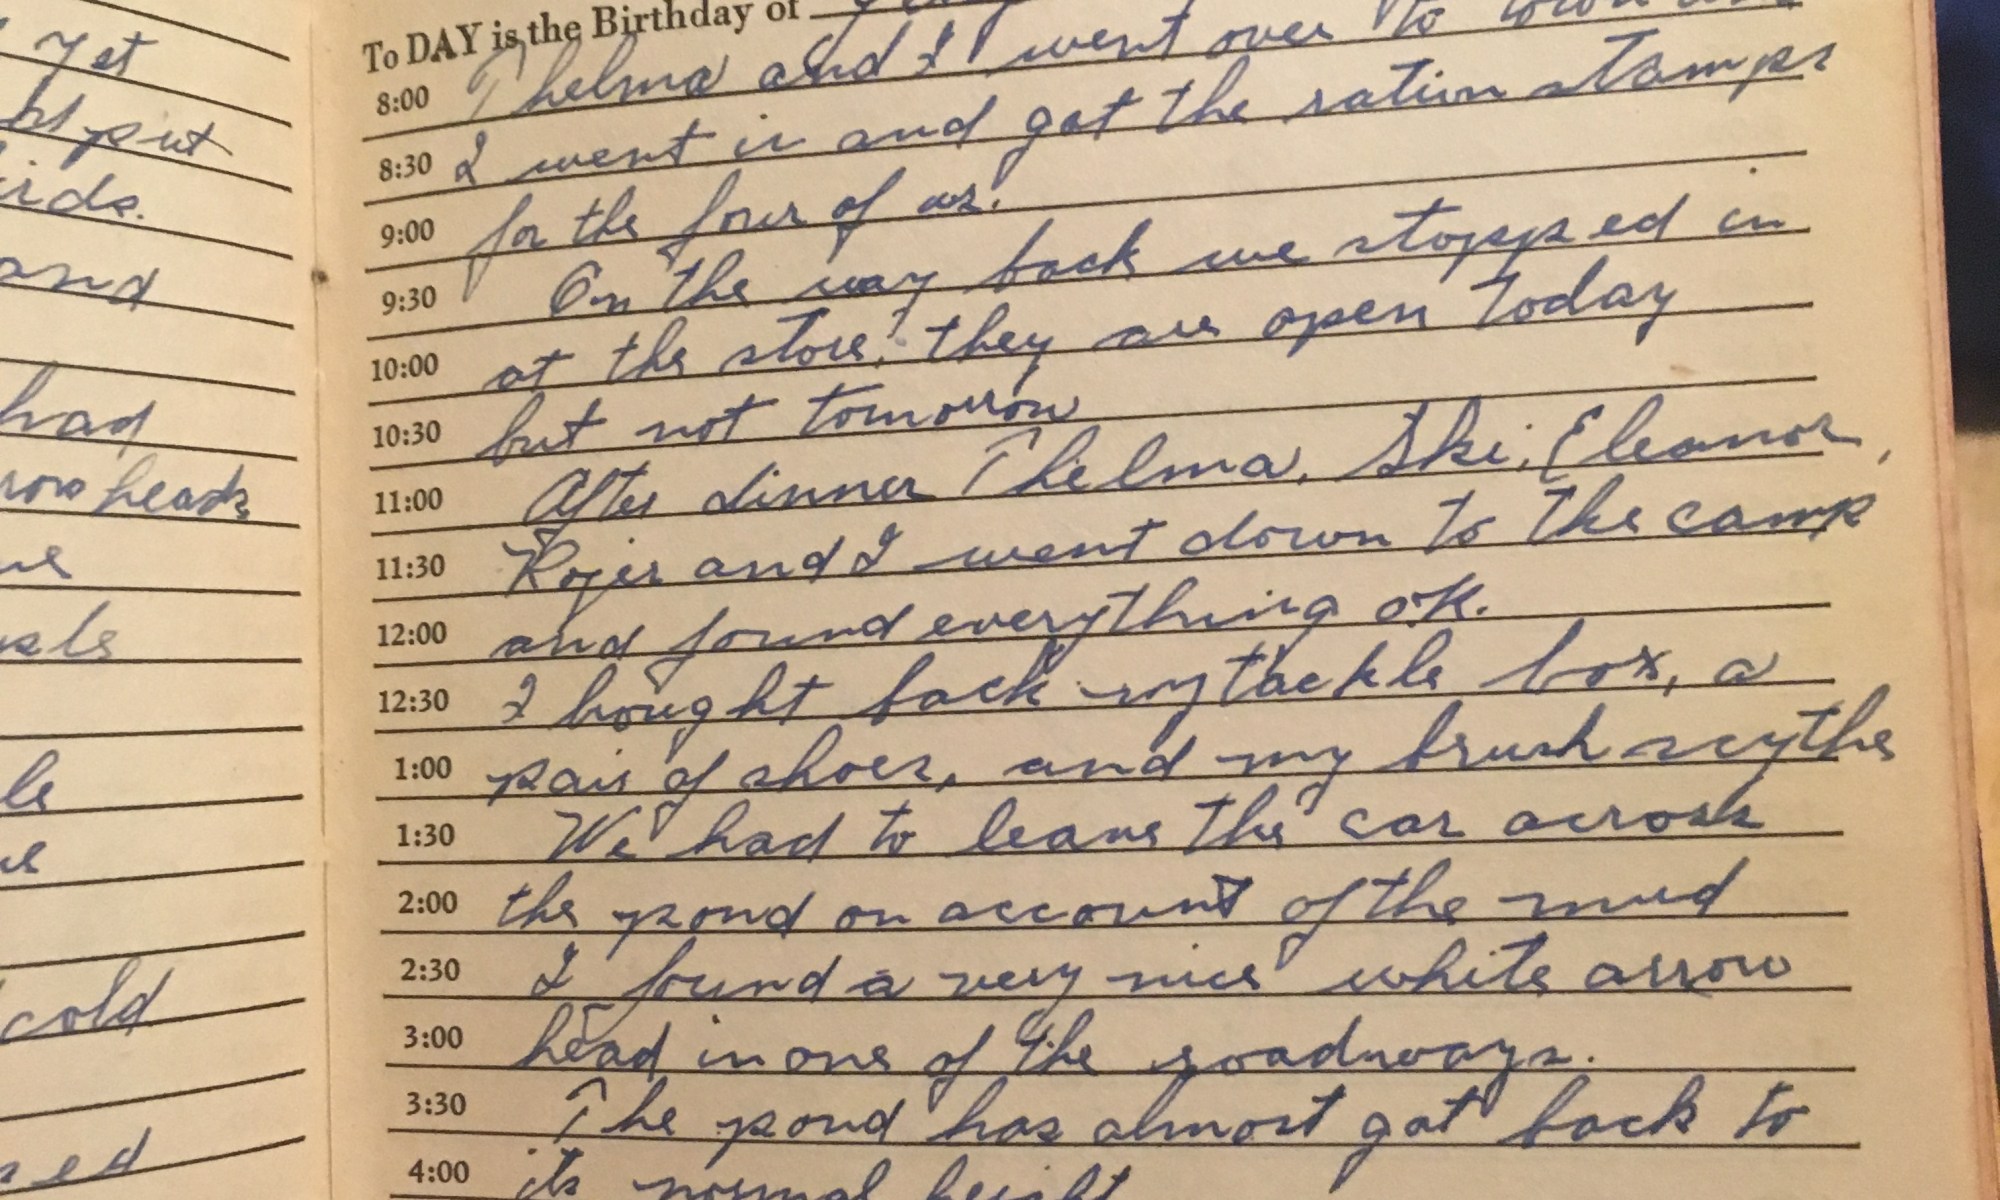 yet
put
and
had
heads
cold
To DAY is the Birthday of
8:00 Thelma and I went over to town and
8:30 I went in and got the ration stamps
9:00 for the four of us.
9:30 On the way back we stopped in
10:00 at the store. they are open today
10:30 but not tomorrow
11:00 After dinner Thelma, Ski, Eleanor,
11:30 Rojer and I went down to the camp
12:00 and found everything ok.
12:30 I bought back my tackle box, a
1:00 pair of shoes, and my brush scythe
1:30 We had to leave the car across
2:00 the pond on account of the mud
2:30 I found a very nice white arrow
3:00 head in one of the roadways.
3:30 The pond has almost got back to
4:00 its normal height